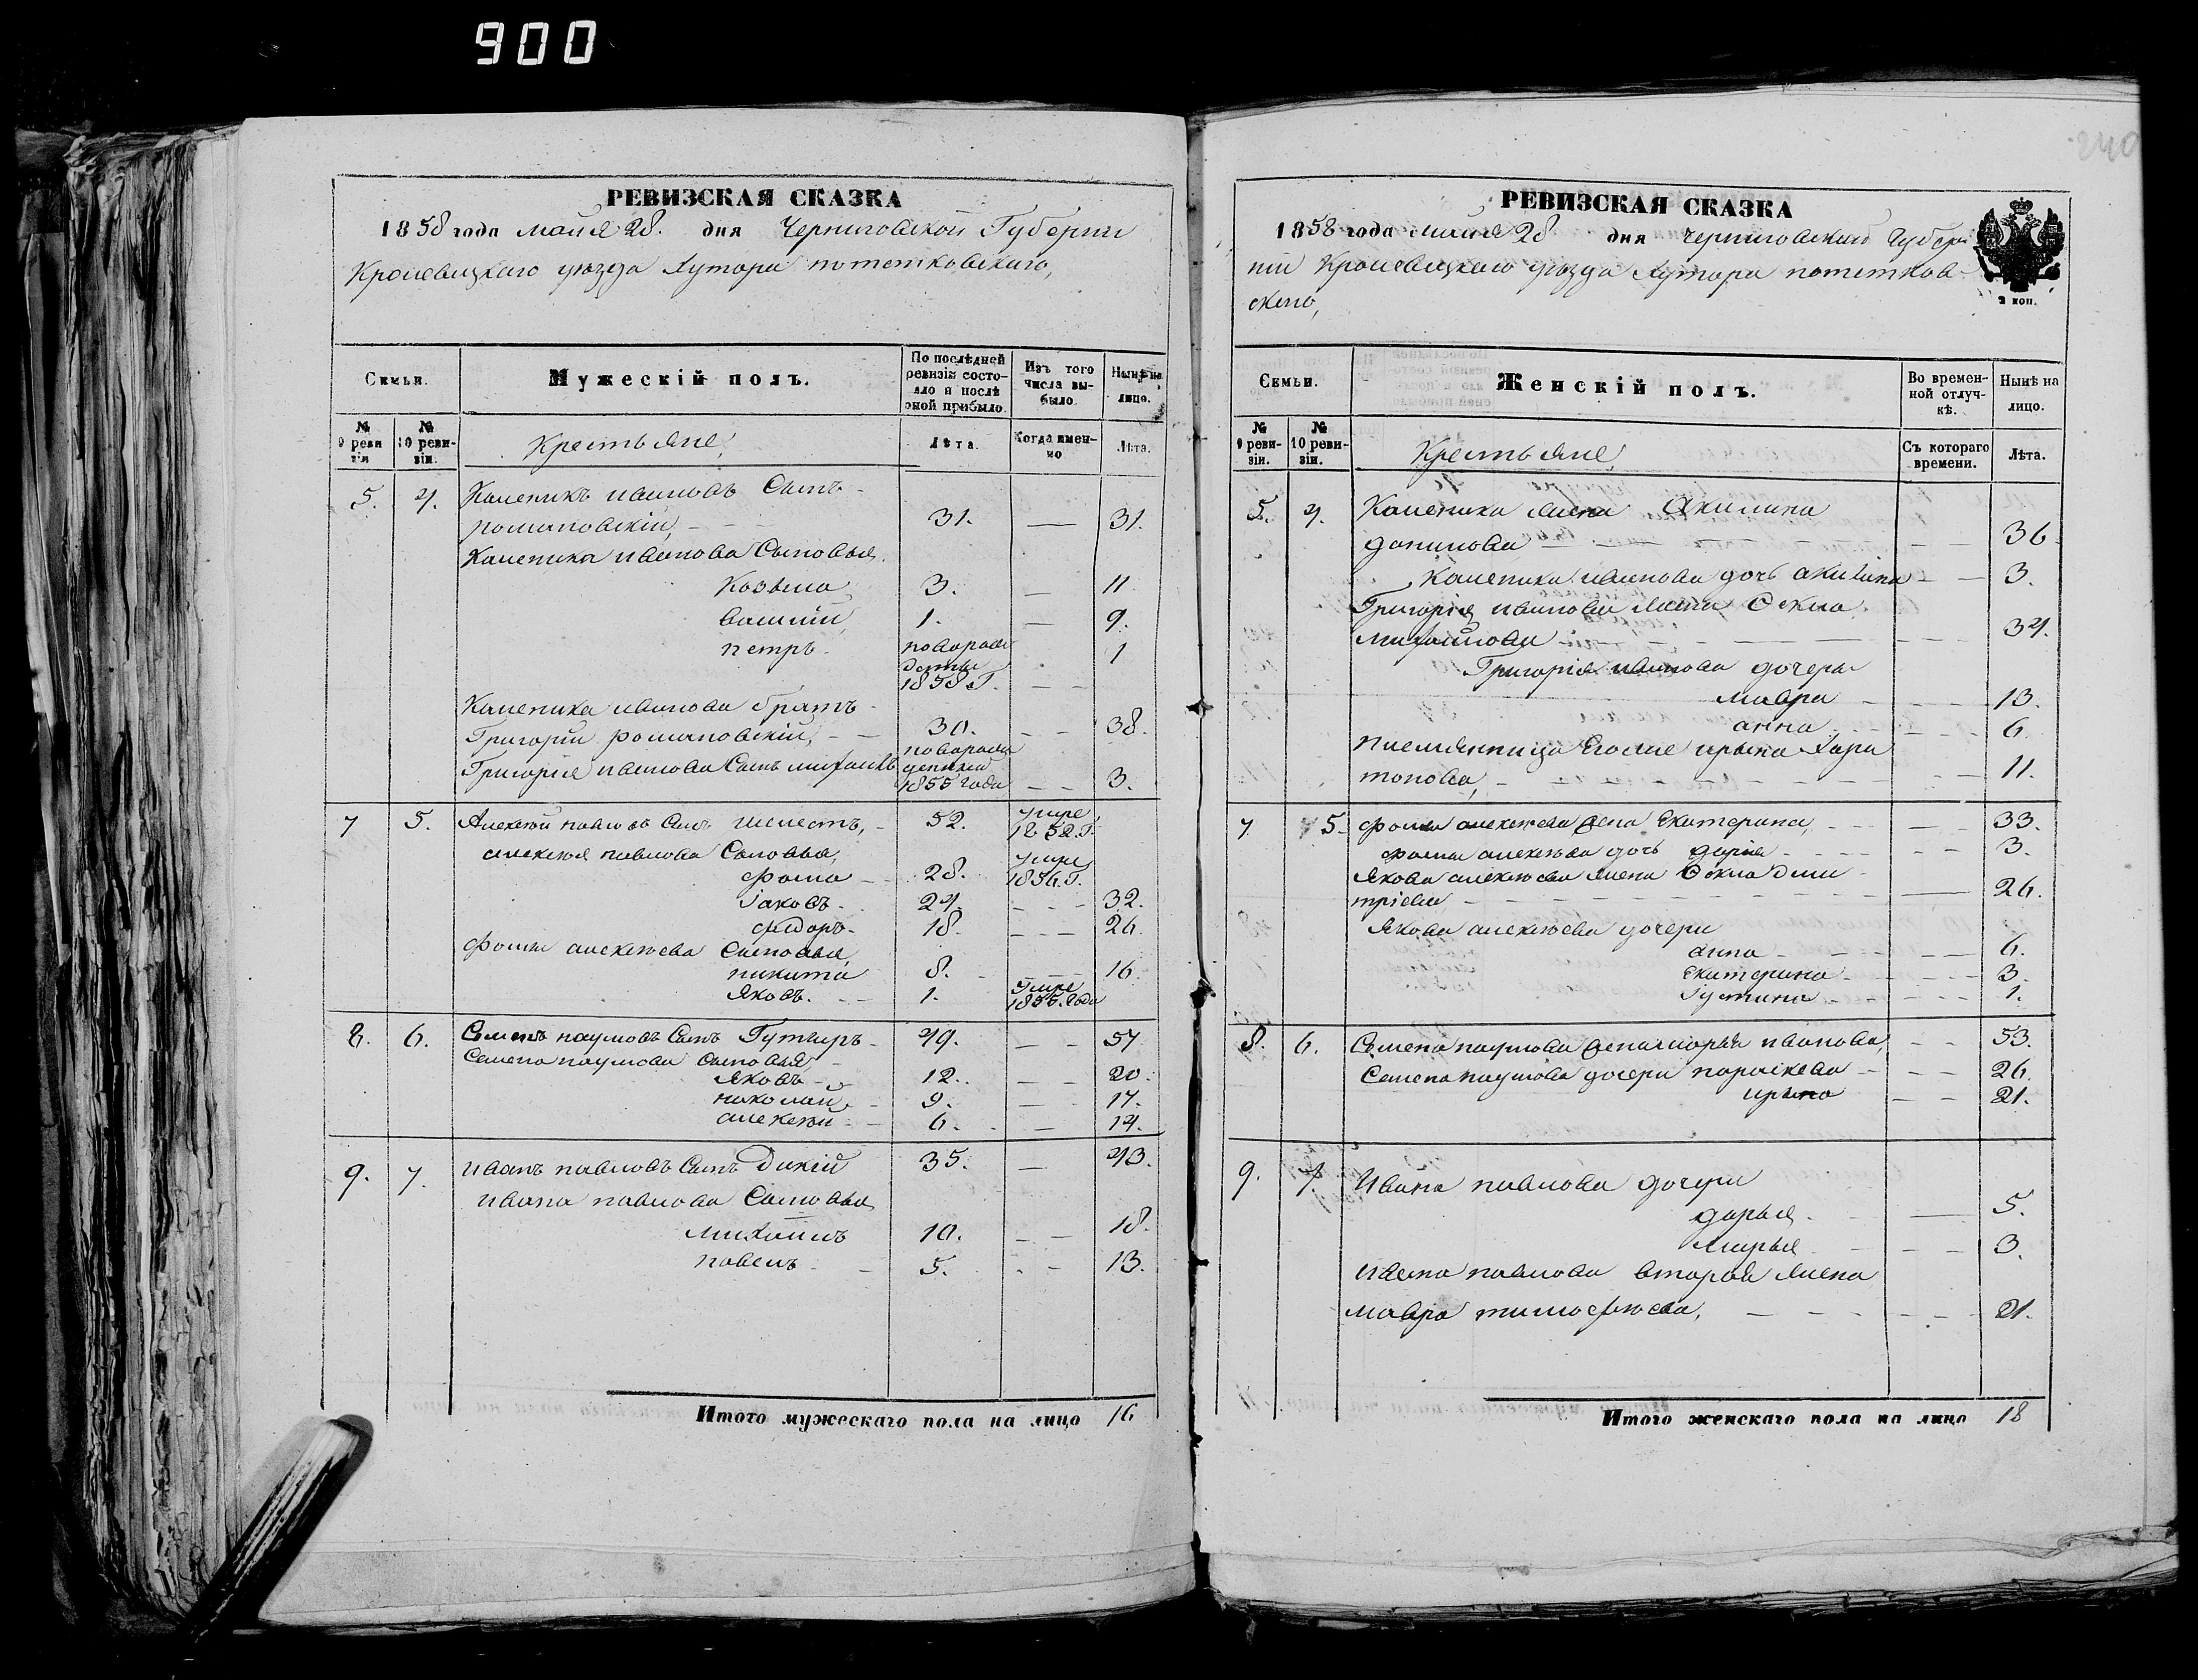 900
240
РЕВИЗСКАЯ СКАЗКА
1858 года майя 28. дня Черниговской Губерніи
Кролевецкаго уѣзда Хутора потетковскаго,
Семьи.
Мужескій полъ.
По послѣдней ревизіи состояло и послѣ оной прибыло.
Изъ того числа выбыло.
Нынѣ на лицо.
№ 9 ревизіи
№ 10 ревизіи.
Крестьяне,
Лѣта.
Когда именно
Лѣта.
5. 4. Каленикъ ивановъ Сынъ
романовскій, 31. — 31.
Каленика иванова Сыновья
Козьма 3. — 11
василій 1. — 9.
петръ 1
1858 Г.
Каленика иванова братъ
Григорій романовскій, 30. — 38.
Григорія иванова Сынъ михаилъ 1855 года 3.
7 5. Алексѣй павловъ Сынъ шелестъ, 52. умре 1852. Г.
алексѣя павлова Сыновья,
фома 28. умре 1856. Г.
Іаковъ 24. 32.
фѣдоръ 18. 26.
фомы алексѣева Сыновья,
никита 8. 16
Яковъ. 1. умре года
8. 6. Семенъ наумовъ Сынъ Гутыръ 49. 57
Семена наумова Сыновья,
Яковъ 12. 20.
николай 9. 17.
алексѣй 6. 14.
9. 7. Иванъ павловъ Сынъ Дикій 35. — 43.
ивана павлова Сыновья
Михаилъ 10. 18.
павелъ 5. 13.
Итого мужескаго пола на лицо 16
РЕВИЗСКАЯ СКАЗКА
1858 года майя 28 дня черниговской губер
ніи Кролевецкаго уѣзда Хутора потетков
скаго,
2 коп.
Семьи.
Женскій полъ.
Во временной отлучкѣ.
Нынѣ на лицо.
№ 9 ревизіи.
№ 10 ревизіи.
Крестьяне,
Съ котораго времени.
Лѣта.
5. 4. Каленика жена Акилина
данилова 36.
Каленика иванова дочь акилина 3.
Григорія иванова жена Фекла
михайлова 34.
Григорія иванова дочеры
мавра 13.
анна 6
племянница Егоже ирына Хари
тонова, 11.
7 5. фомы алексѣева жена Екатерина, 33.
фомы алексѣева дочь дарія 3.
Якова алексѣева жена Фекла Дми
тріева, 26.
Якова алексѣева дочери
анна 6.
екатерина 3.
Іустина 1.
8. 6. Семена наумова жена марья иванова, 53.
Семена наумова дочери параскева 26.
ирына 21.
9. 7. Ивана павлова дочери
дарья 5.
Марья 3.
Ивана павлова вторая жена
мавра тимофѣева, 21.
Итого женскаго пола на лицо 18